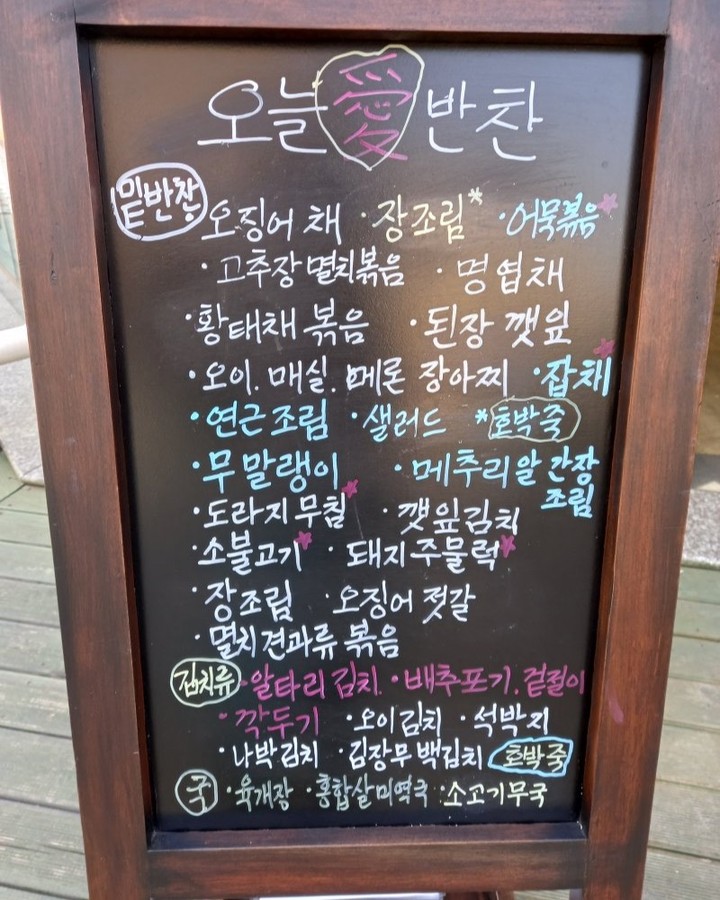 오늘 愛 반찬
밑반찬 오징어 채 · 장조림* · 어묵볶음*
· 고추장 멸치볶음 · 명엽채
· 황태채 볶음 · 된장 깻잎
· 오이. 매실. 메론 장아찌 · 잡채*
· 연근조림 · 샐러드 *호박죽
· 무말랭이 · 메추리알 간장
조림
· 도라지무침* · 깻잎김치
· 소불고기* · 돼지주물럭*
· 장조림 · 오징어 젓갈
· 멸치견과류 볶음
김치류 · 알타리 김치. · 배추포기. 겉절이
· 깍두기 · 오이김치 · 석박지
· 나박김치 · 김장무백김치 호박죽
국 · 육개장 · 홍합살미역국 · 소고기무국